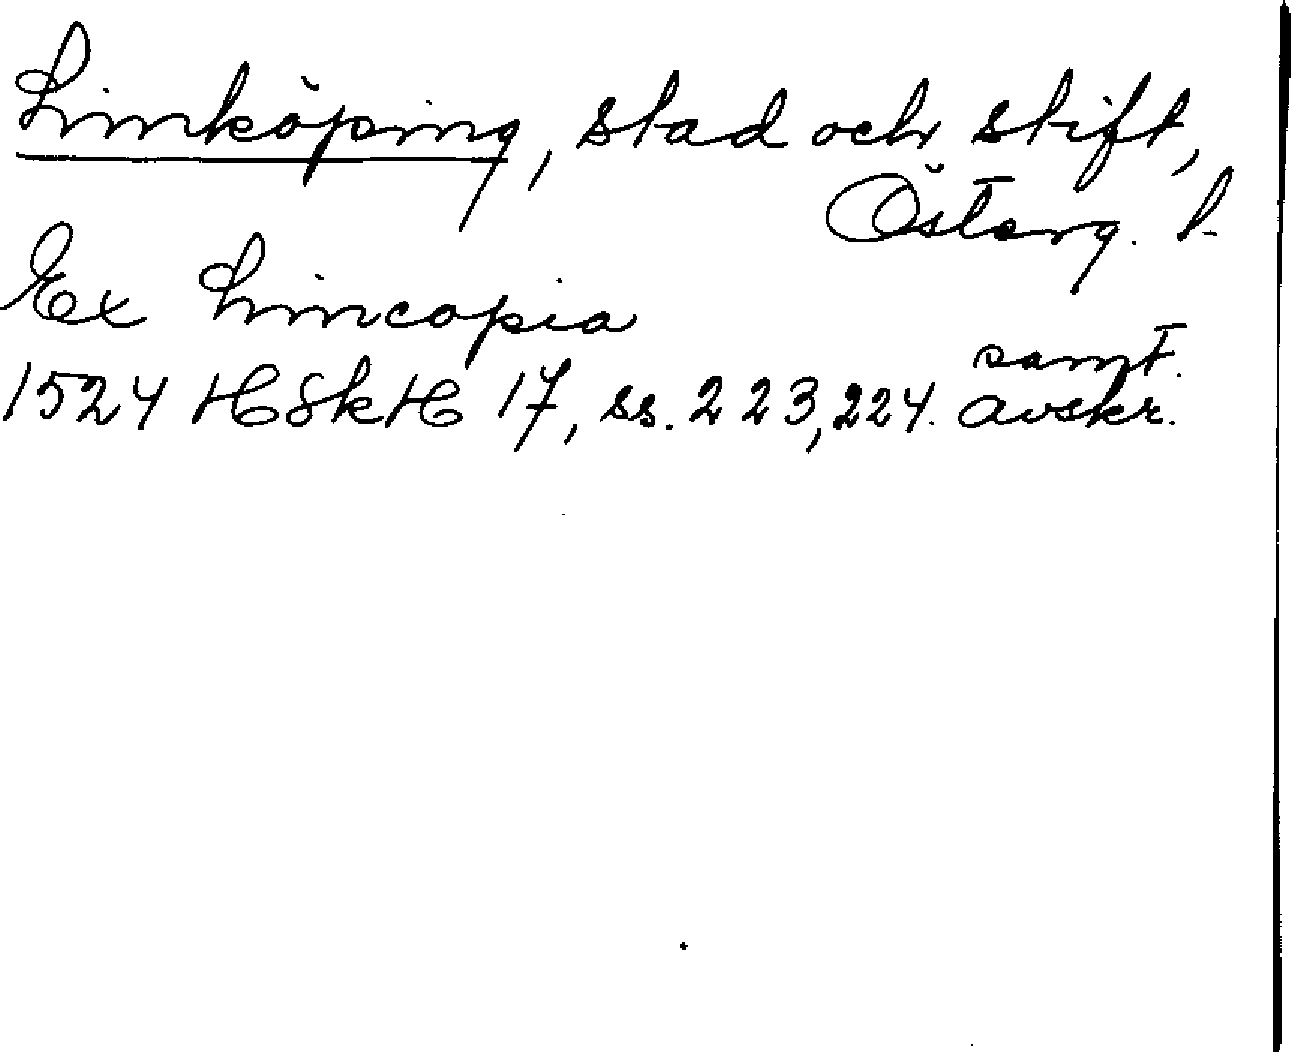 Linköping, stad och stift,
Österg. l.
Ex Lincopia
1524 HSkH 17, ss. 223, 224. samt. avskr.